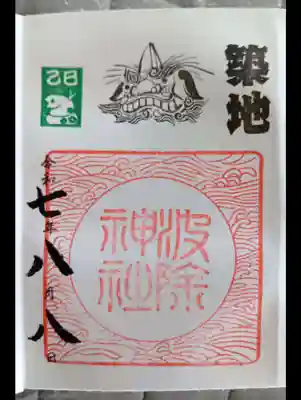 築地
波除
神社
令和七年八月八日